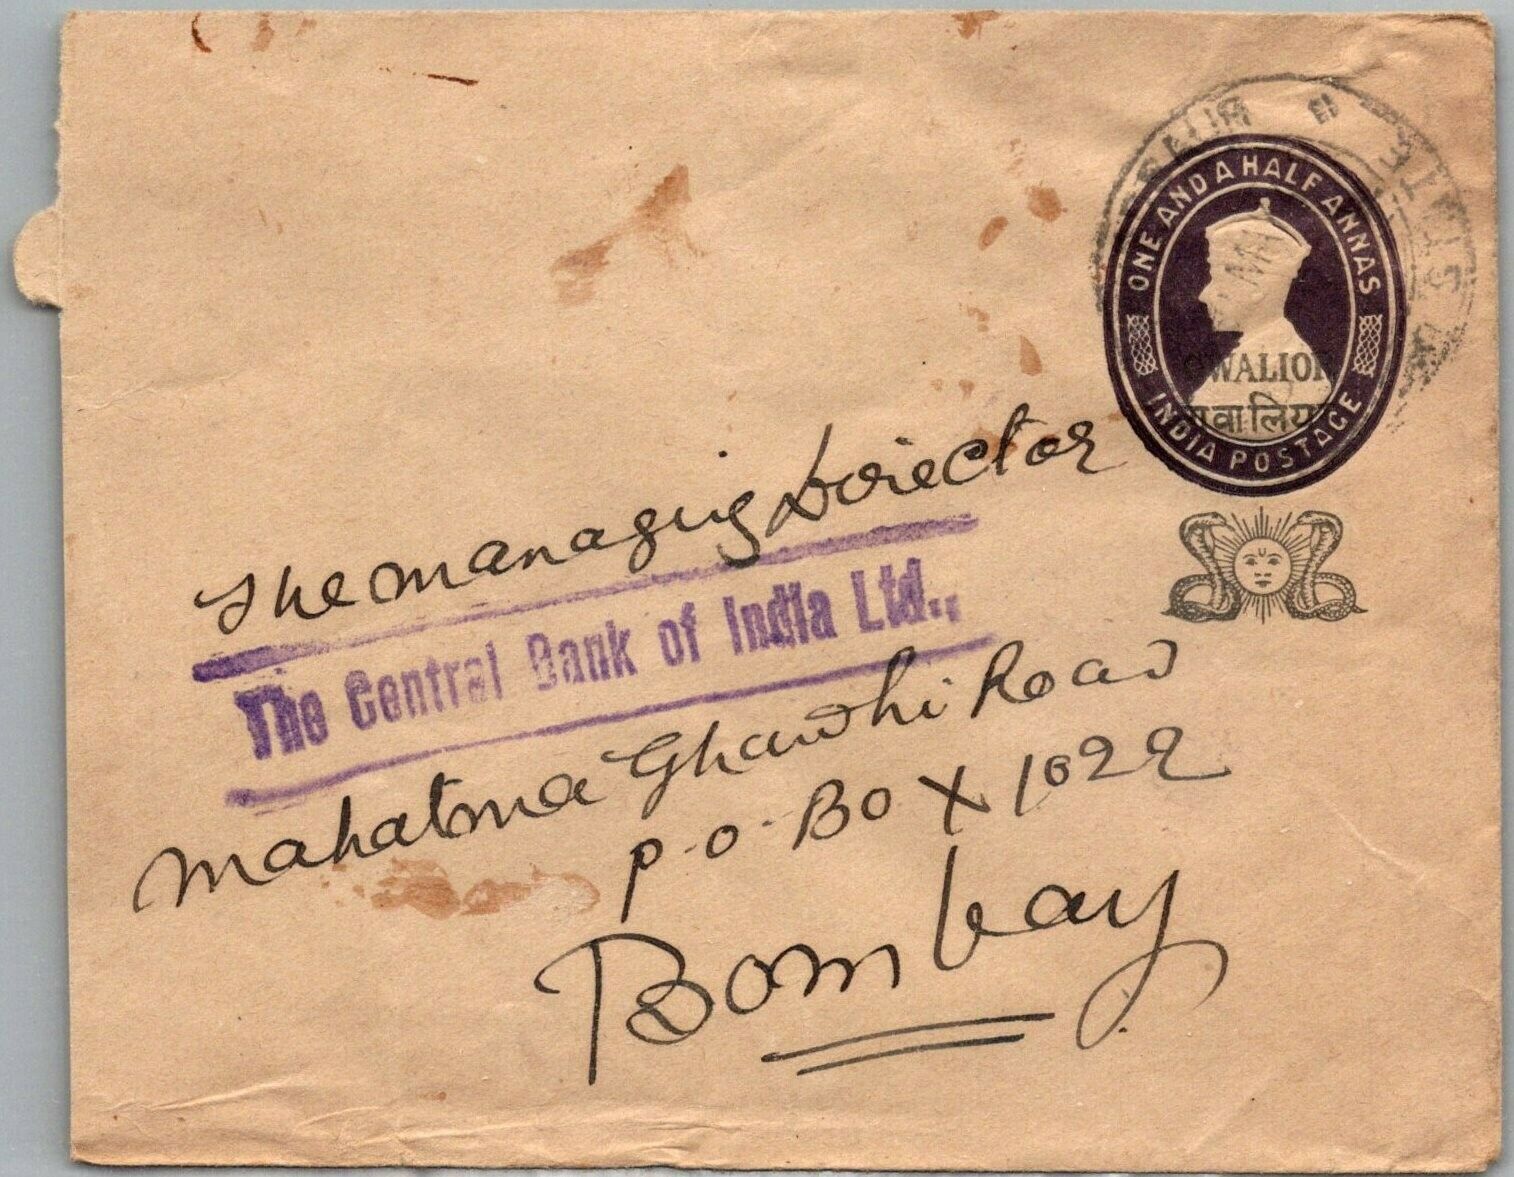 ONE AND A HALF ANNAS
GWALIOR
INDIA POSTAGE
The Managing Director
The Central Bank of India Ltd.,
Mahatma Ghandhi Road
P.O. Box 1022
Bombay